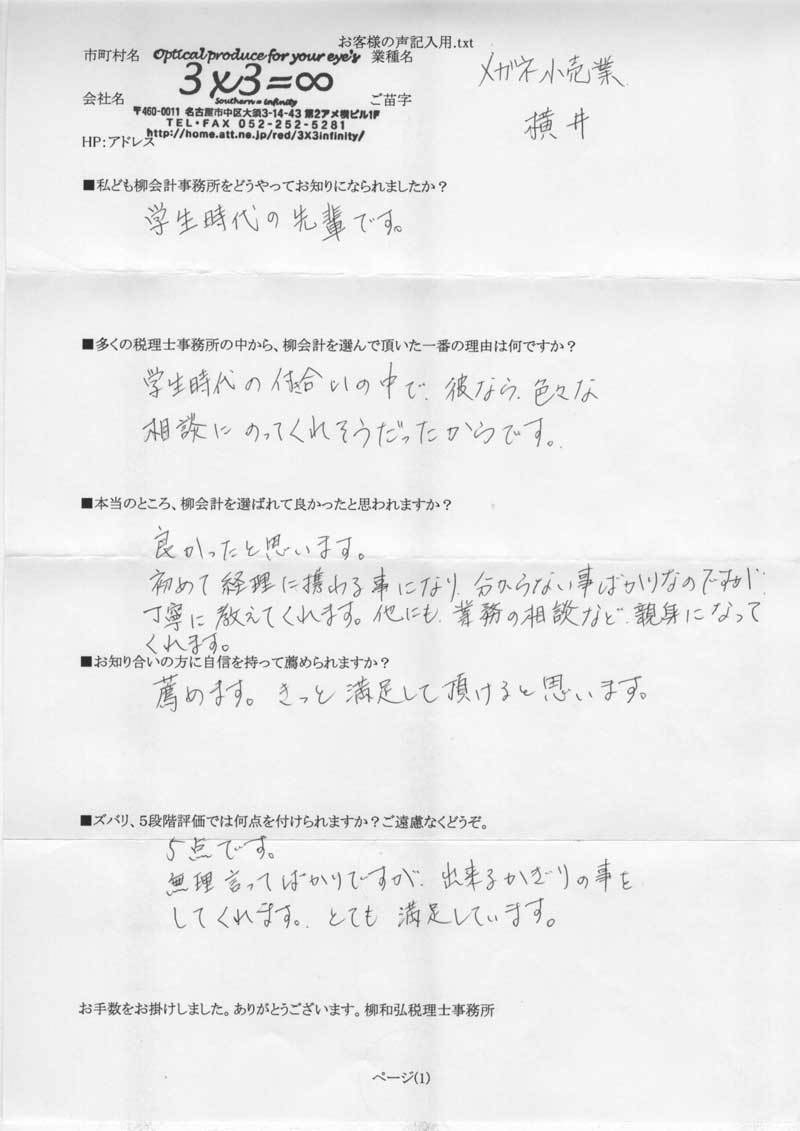 お客様の声記入用.txt
市町村名 Optical produce for your eye's 業種名 メガネ小売業
3x3=∞
会社名 Southern=infinity ご苗字 横井
〒460-0011 名古屋市中区大須3-14-43 第2アメ横ビル1F
TEL・FAX 052-252-5281
HP:アドレス http://home.att.ne.jp/red/3X3infinity/
■私ども柳会計事務所をどうやってお知りになられましたか?
学生時代の先輩です。
■多くの税理士事務所の中から、柳会計を選んで頂いた一番の理由は何ですか?
学生時代の付合いの中で、彼なら、色々な
相談にのってくれそうだったからです。
■本当のところ、柳会計を選ばれて良かったと思われますか?
良かったと思います。
初めて経理に携わる事になり、分からない事ばかりなのですが、
丁寧に教えてくれます。他にも、業務の相談など、親身になって
くれます。
■お知り合いの方に自信を持って薦められますか?
薦めます。きっと満足して頂けると思います。
■ズバリ、5段階評価では何点を付けられますか?ご遠慮なくどうぞ。
5点です。
無理言ってばかりですが、出来るかぎりの事を
してくれます。とても満足しています。
お手数をお掛けしました。ありがとうございます。柳和弘税理士事務所
ページ(1)